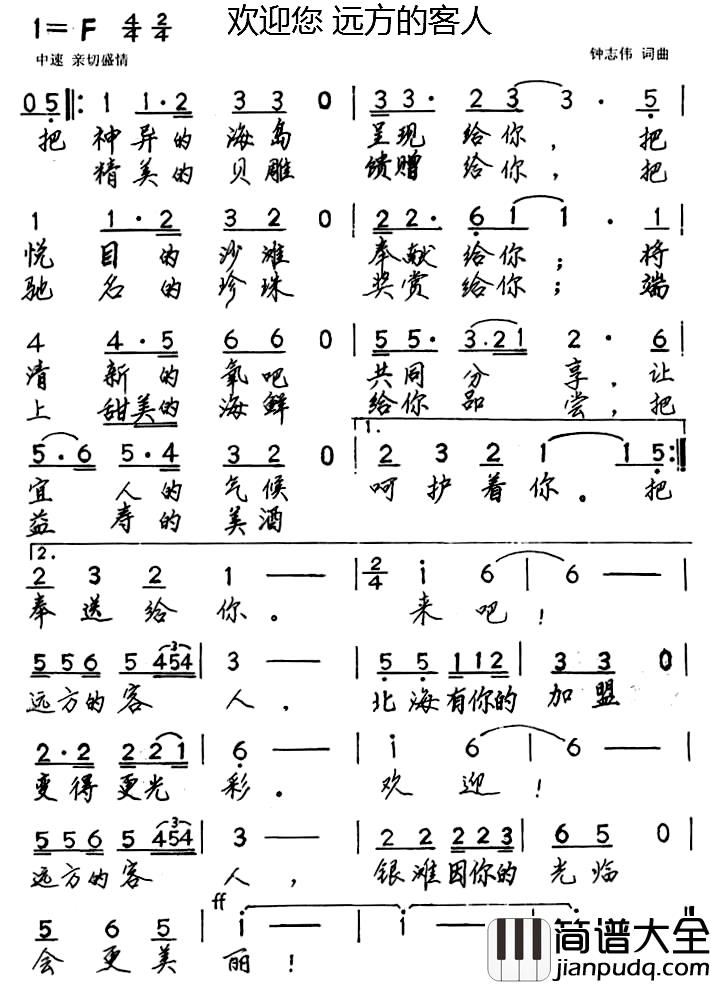 欢迎您 远方的客人
1=F 4/4 2/4
中速 亲切盛情
钟志伟 词曲
05‖: 1 1·2 3 3 0 | 3 3· 2 3 3· 5 |
把 神异的 海岛 呈现 给你， 把
精美的 贝雕 馈赠 给你， 把
1 1·2 3 2 0 | 2 2· 6 1 1· 1 |
悦 目 的 沙滩 奉献 给你； 将
驰 名 的 珍珠 奖赏 给你； 端
4 4·5 6 6 0 | 5 5· 3.21 2· 6 |
清 新 的 氧吧 共同 分 享，让
上 甜美的 海鲜 给你 品 尝，把
1.
5·6 5·4 3 2 0 | 2 3 2 1 1 5 :‖
宜 人的 气候 呵护着你。 把
益 寿的 美酒
2.
2 3 2 1 — — | 2/4 i 6 | 6 — |
奉送给 你。 来吧！
5 56 5 454 | 3 — | 5 5 112 | 3 3 0 |
3
远方的客 人， 北海有你的 加盟
2·2 2 21 | 6 — | i 6 | 6 — |
变得更光 彩。 欢 迎！
5 56 5 454 | 3 — | 2 2 223 | 6 5 0 |
3
远方的客 人， 银滩因你的 光临
ff
5 6 5 | i — | i — | i — | i 0 ‖
会 更 美 丽！
简谱大全
jianpudq.com